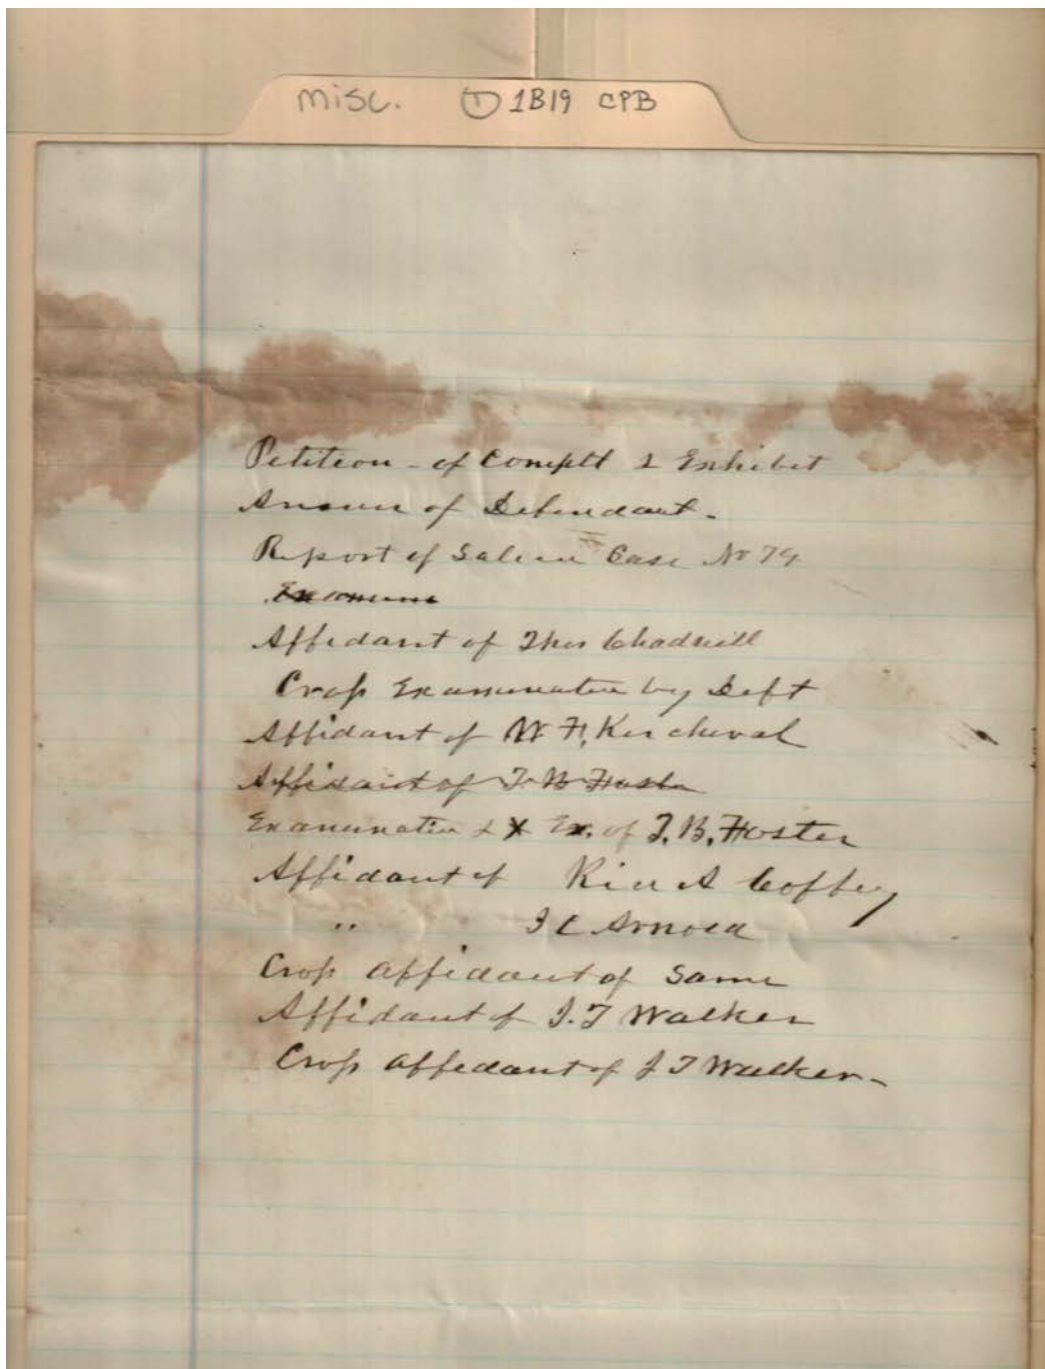 misc. ① 1B19 CPB
Petition - of Complt & Exhibit
Answer of Defendant -
Report of Salem Case No 74
Affidavit of Thos Chadwell
Cross Examination by Deft
Affidavit of W. F. Kercheval
Affidavit of T. B. Foster
Examination & X Ex. of T. B. Foster
Affidavit of A Coffey
" J C Arnold
Cross affidavit of Same
Affidavit of J. T Walker
Cross affidavit of J T Walker -